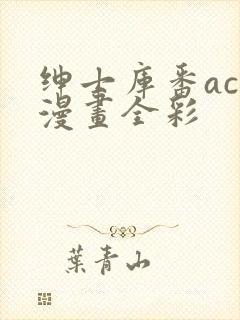 绅士库番ac
漫畫全彩
葉青山